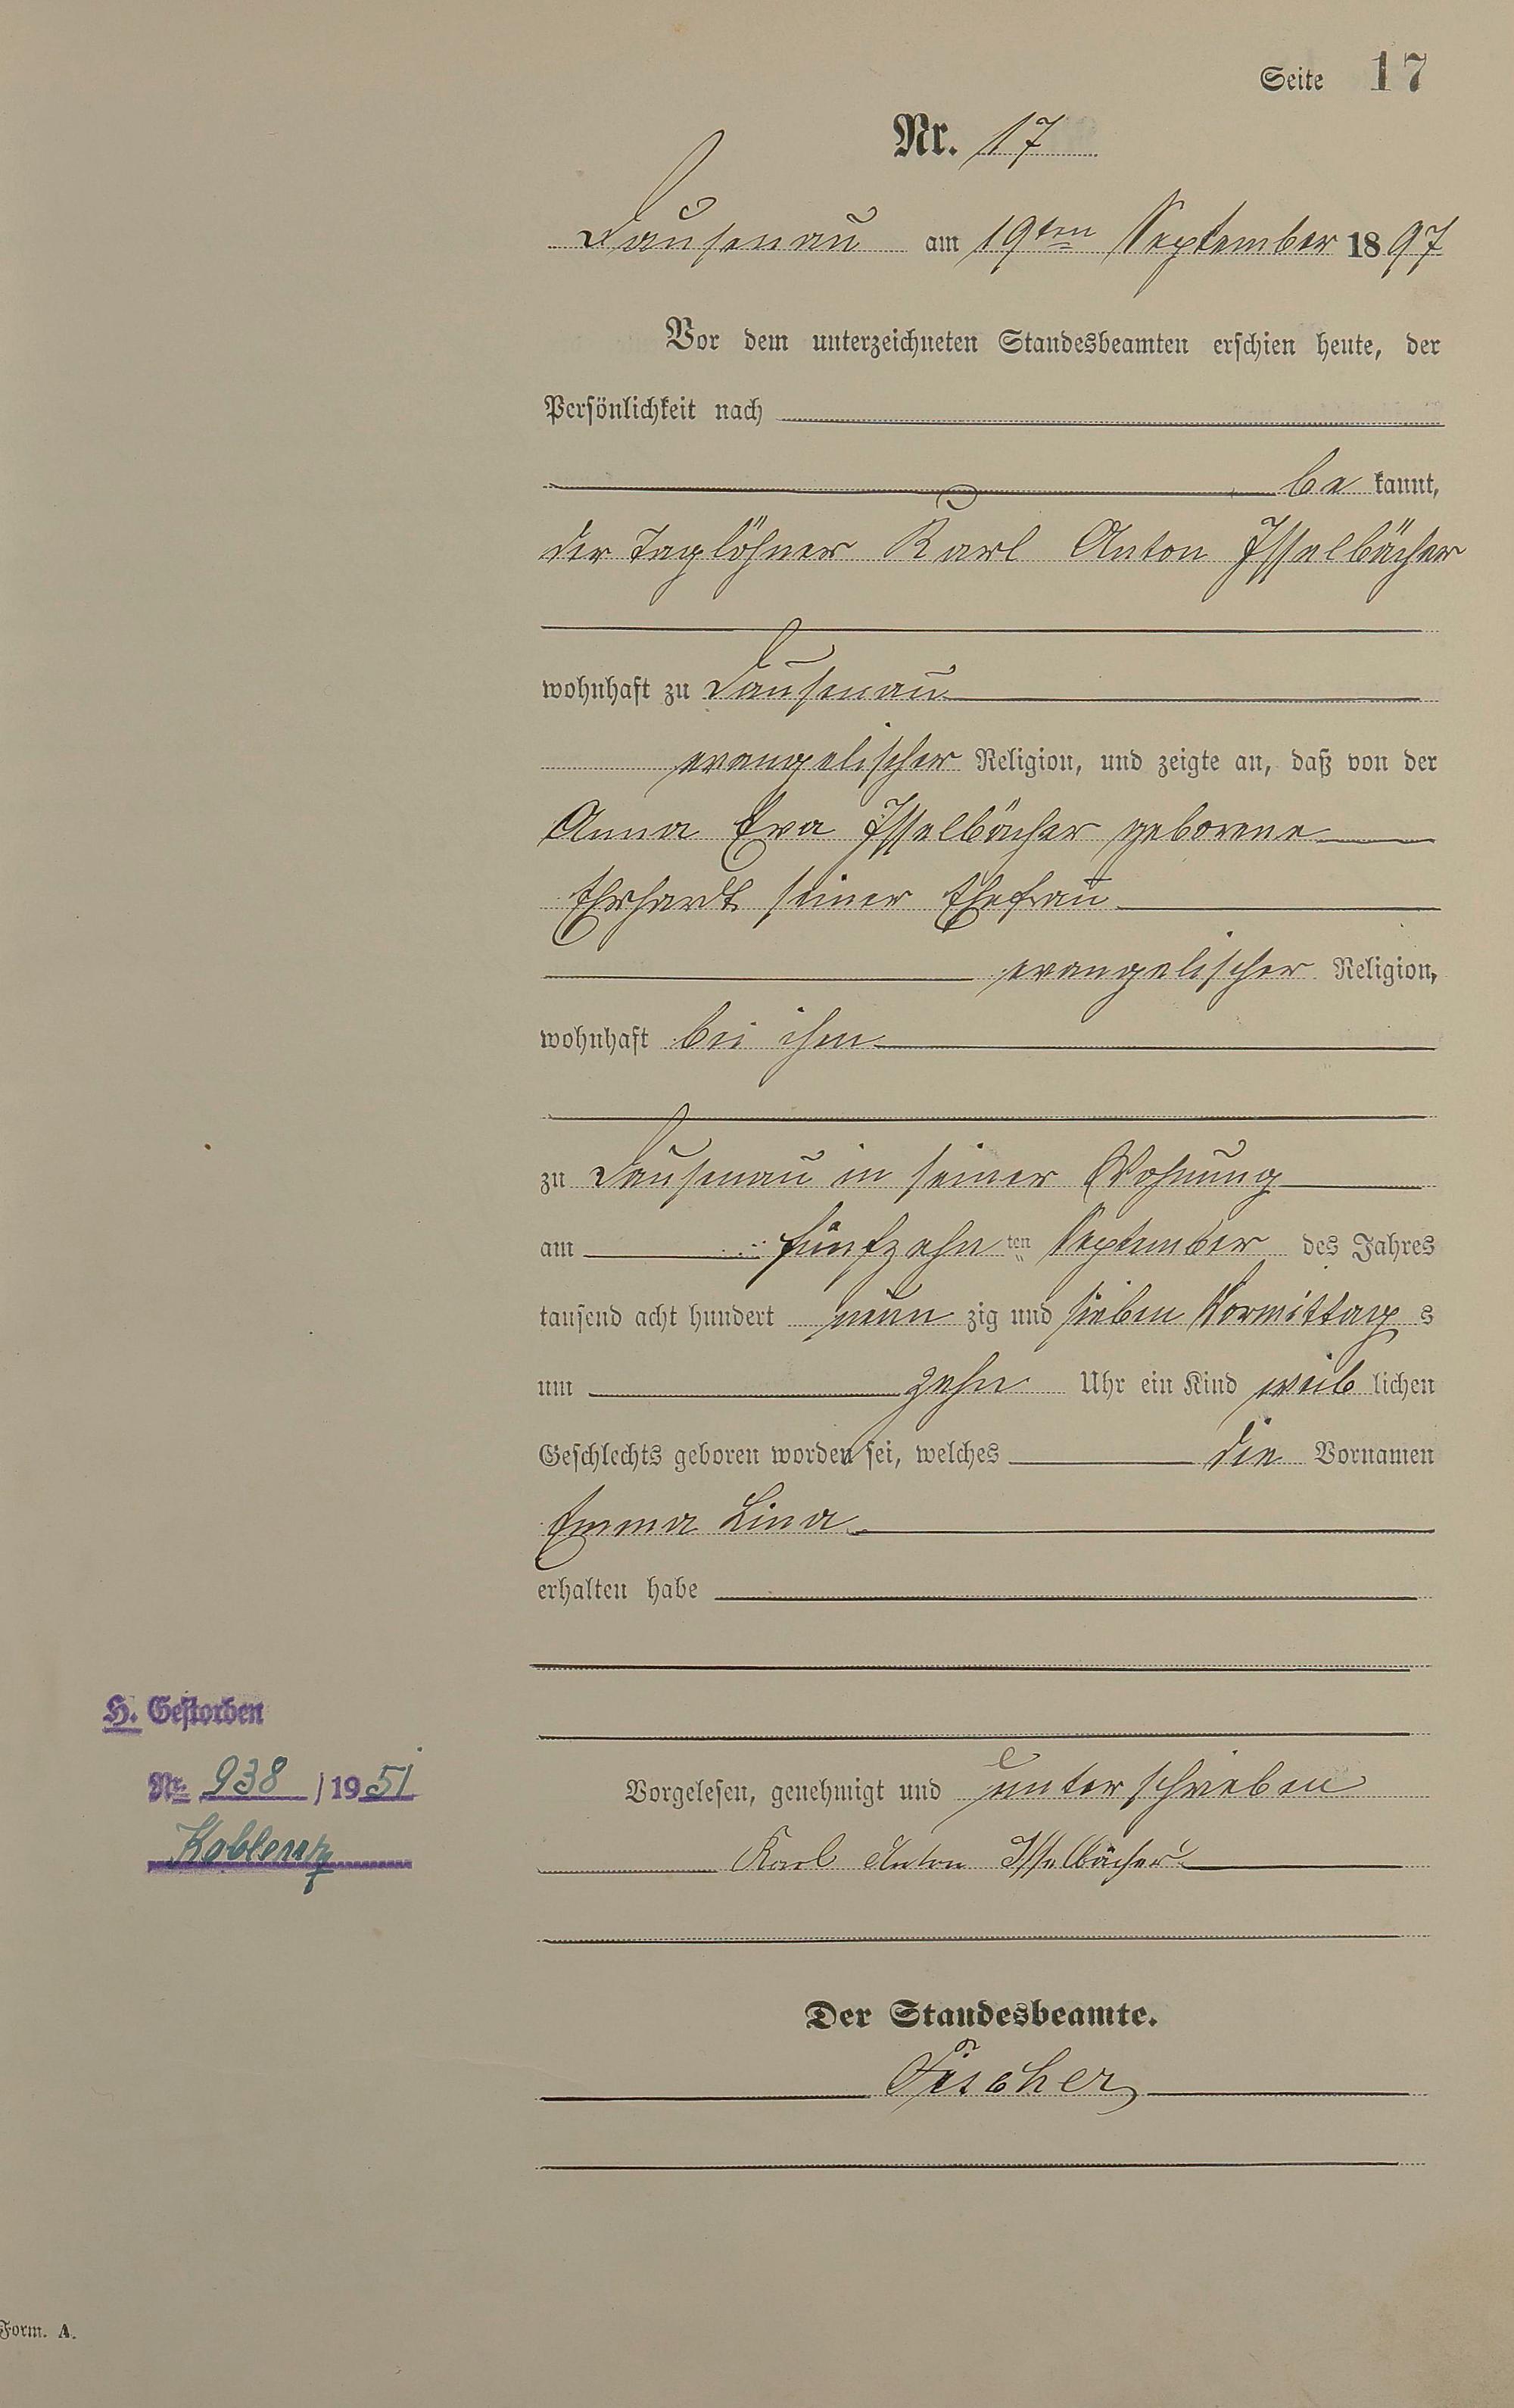 Seite 17
Nr. 17
Dausenau am 19ten September 1897
Vor dem unterzeichneten Standesbeamten erschien heute, der
Persönlichkeit nach
be kannt,
der Taglöhner Karl Anton Isselbächer
wohnhaft zu Dausenau
evangelischer Religion, und zeigte an, daß von der
Anna Eva Isselbächer geborene
Ehrhardt seiner Ehefrau
evangelischer Religion,
wohnhaft bei ihm
zu Dausenau in seiner Wohnung
am fünfzehn ten September des Jahres
tausend acht hundert neun zig und sieben Vormittag s
um zehn Uhr ein Kind weib lichen
Geschlechts geboren worden sei, welches die Vornamen
Emma Lina
erhalten habe
H. Gestorben
Nr. 938 / 1951
Koblenz
Vorgelesen, genehmigt und unterschrieben
Karl Anton Isselbächer
Der Standesbeamte.
Fischer
Form. A.